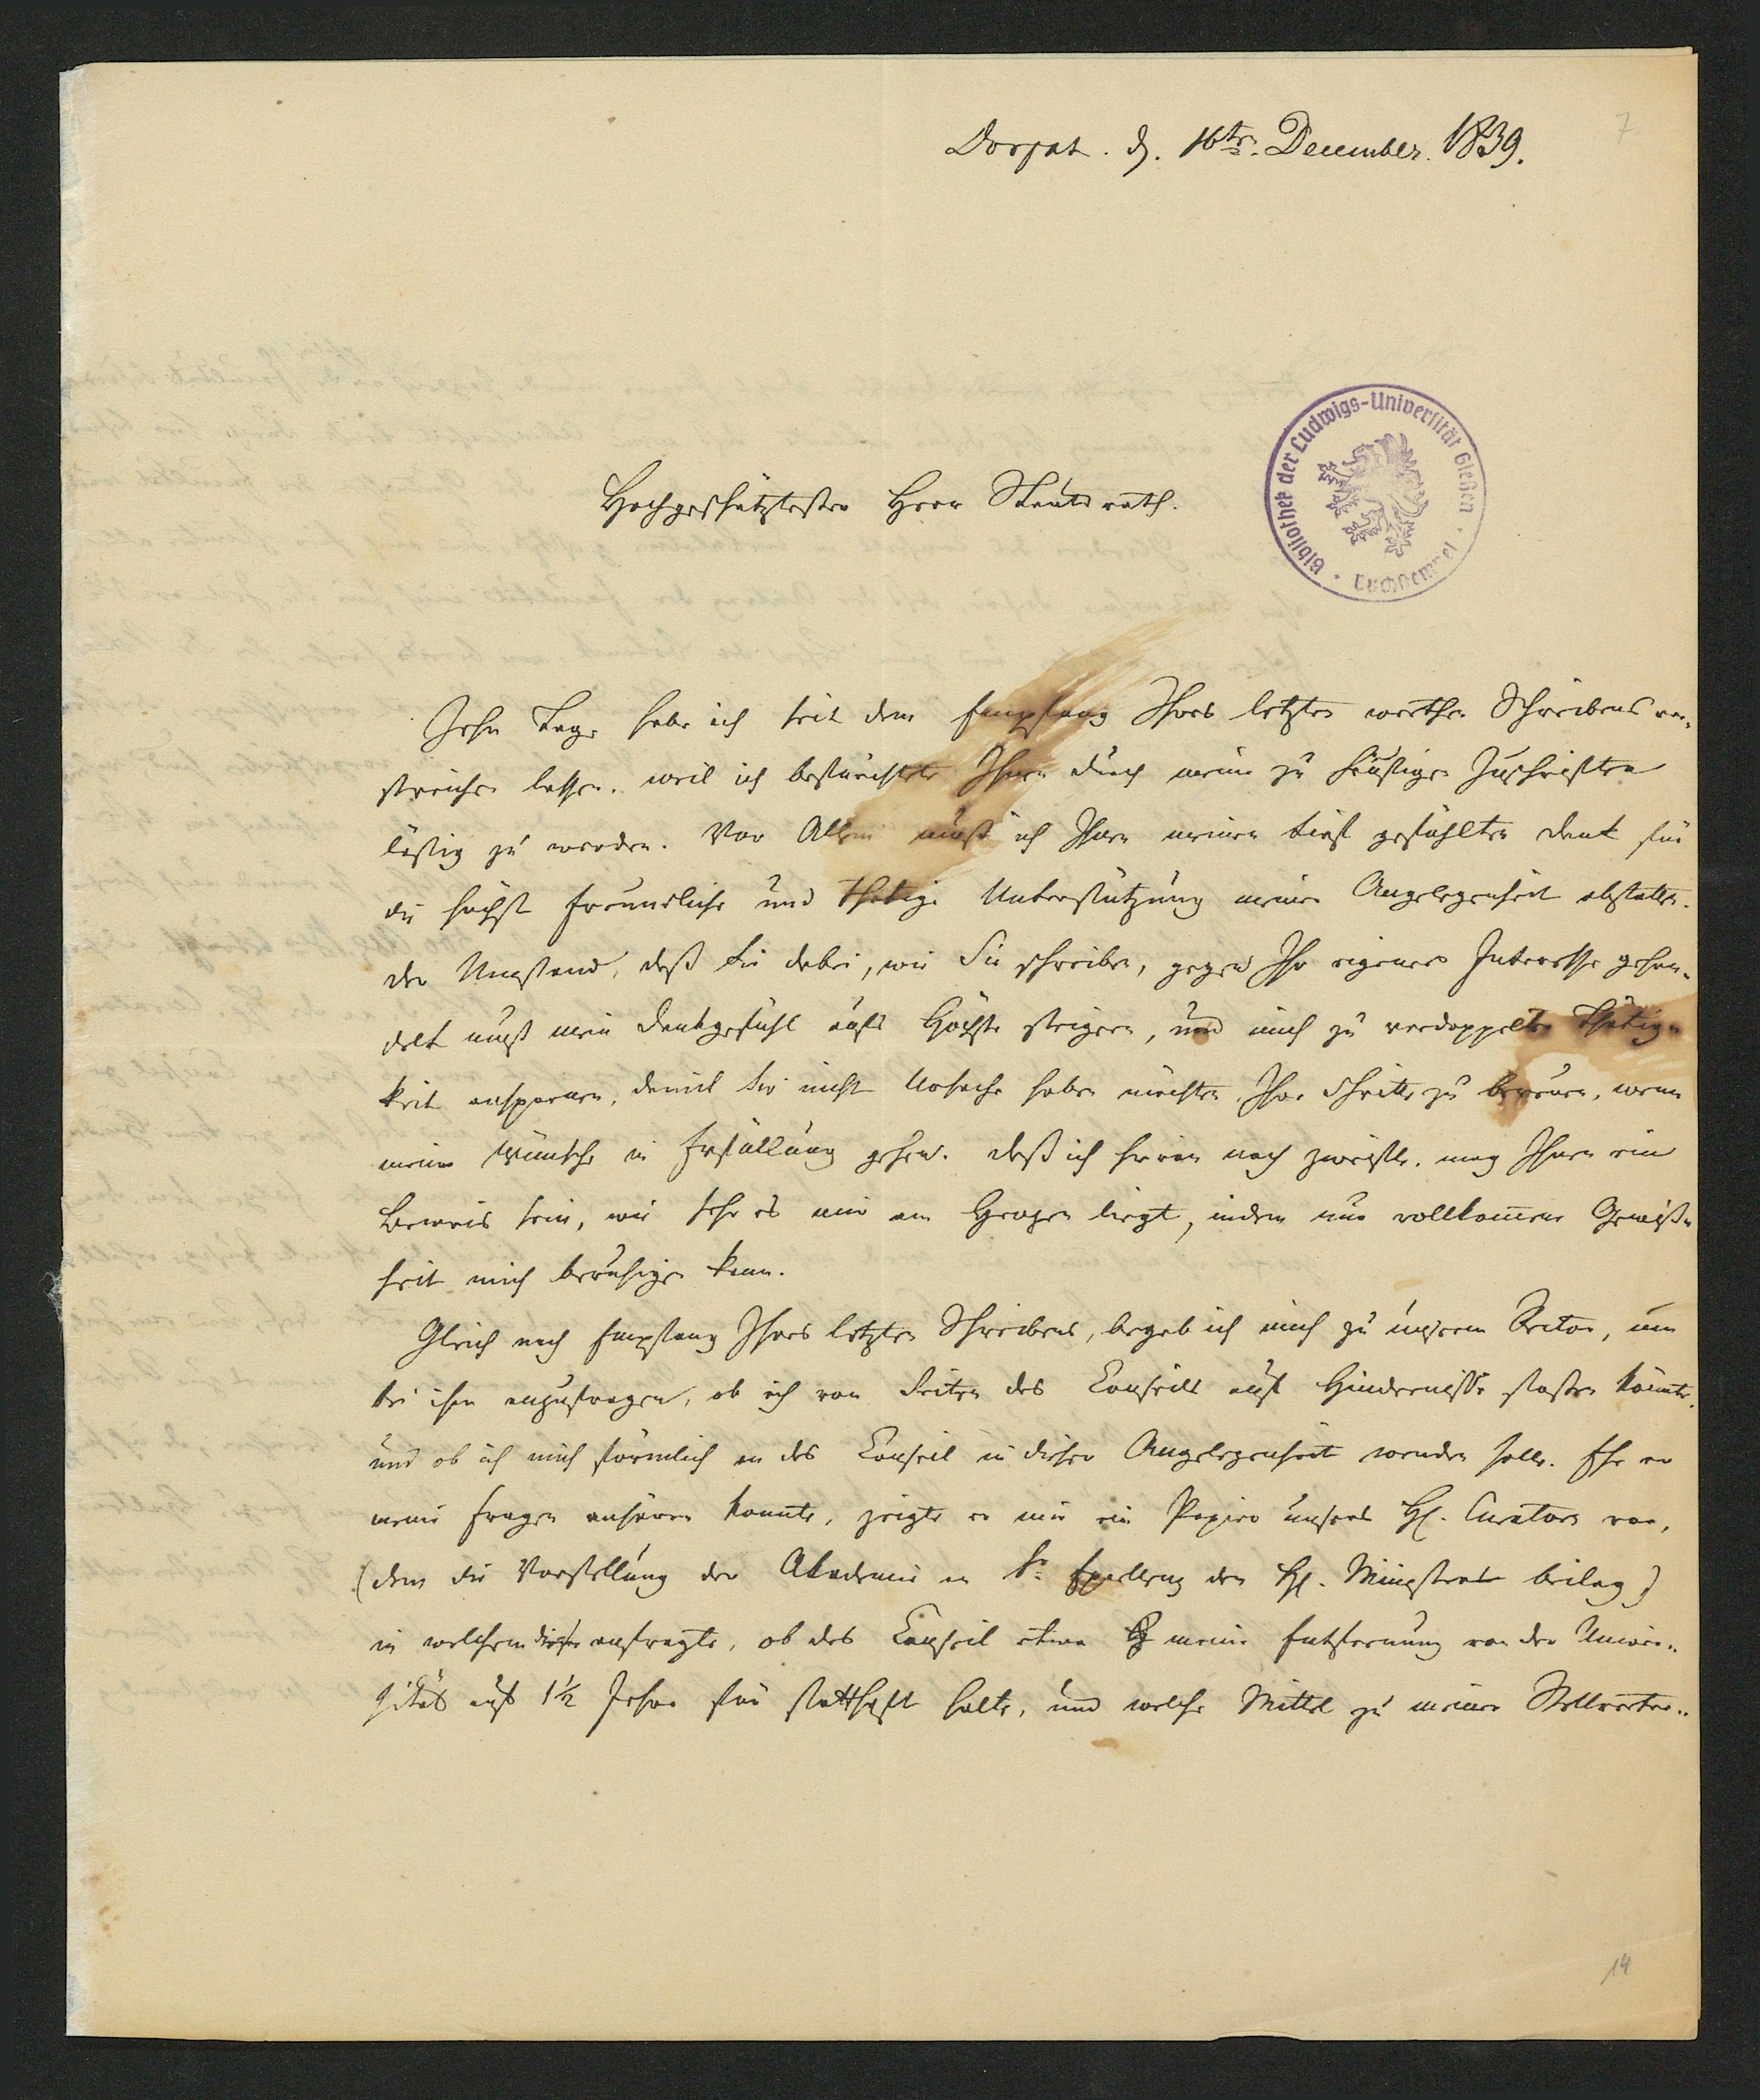 7.
Dorpat. d. 16ten December. 1839.
Bibliothek der Ludwigs-Universität Gießen · Buchstempel ·
Hochgeschätztester Herr Staatsrath.
Zehn Tage habe ich seit dem Empfang Ihres letzten werthen Schreibens ver-
streichen lassen, weil ich befürchtete Ihnen durch meine zu häufigen Zuschriften
lästig zu werden. Vor Allem muß ich Ihnen meinen tief gefühlten Dank für
die höchst freundliche und thätige Unterstützung meiner Angelegenheit abstatten.
Der Umstand, daß Sie dabei, wie Sie schreiben, gegen Ihr eigenes Interesse gehan-
delt muß mein Dankgefühl aufs Höchste steigern, und mich zu verdoppelter Thätig-
keit anspornen, damit Sie nicht Ursache haben möchten Ihre Schritte zu bereuen, wenn
meine Wünsche in Erfüllung gehen. Daß ich hieran noch zweifle, mag Ihnen ein
Beweis sein, wie sehr es mir am Herzen liegt, indem nur vollkommene Gewiß-
heit mich beruhigen kann.
Gleich nach Empfang Ihres letzten Schreibens, begab ich mich zu unserem Rector, um
bei ihm anzufragen, ob ich von Seiten des Conseils auf Hindernisse stoßen könnte,
und ob ich mich förmlich an das Conseil in dieser Angelegenheit wenden solle. Ehe er
meine Fragen anhören konnte, zeigte er mir ein Papier unseres H. Curators vor,
(dem die Vorstellung der Akademie an Sr Excellenz den H. Minister beilag)
in welchem dieser anfragte, ob das Conseil etwa meine Entfernung von der Univer-
sität auf 1½ Jahre für statthaft halte, und welche Mittel zu meiner Stellvertre-
14